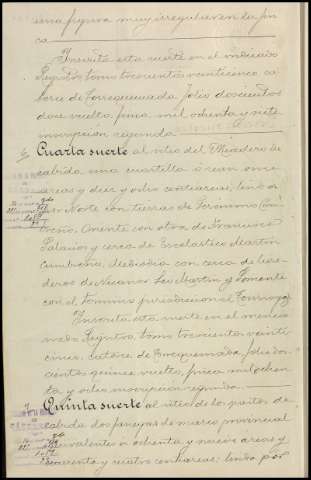 una figura muy irregular en da fin
ca
Inscrita esta suerte en el indicado
Registro, tomo trescientos veinticinco ca
torce de Torrequemada, folio doscientos
doce vuelto, finca mil ochenta y siete
inscripción segunda
Cuarta suerte al sitio del Miradero de
cabida una cuartilla o sean once
areas y diez y ocho centiareas; linda
Norte con tierras de Geronimo
Oriente con otra de Francisco
Palacios y cerca de Escolastico Martin
Mediodia con cerca de here
deros de Nicanor Leo Martin y Poniente
con el termino jurisdiccional
Inscrita esta suerte en el mencio
nado Registro, tomo trescientos veinti
cinco, catorce de Torrequemada, folio dos
cientos quince vuelto, finca mil ochen
ta y ocho inscripción segunda
Quinta suerte al sitio de los patos de
cabida dos fanegas de marco provincial
equivalentes a ochenta y nueve areas y
cuarenta y cuatro centiareas; linda por